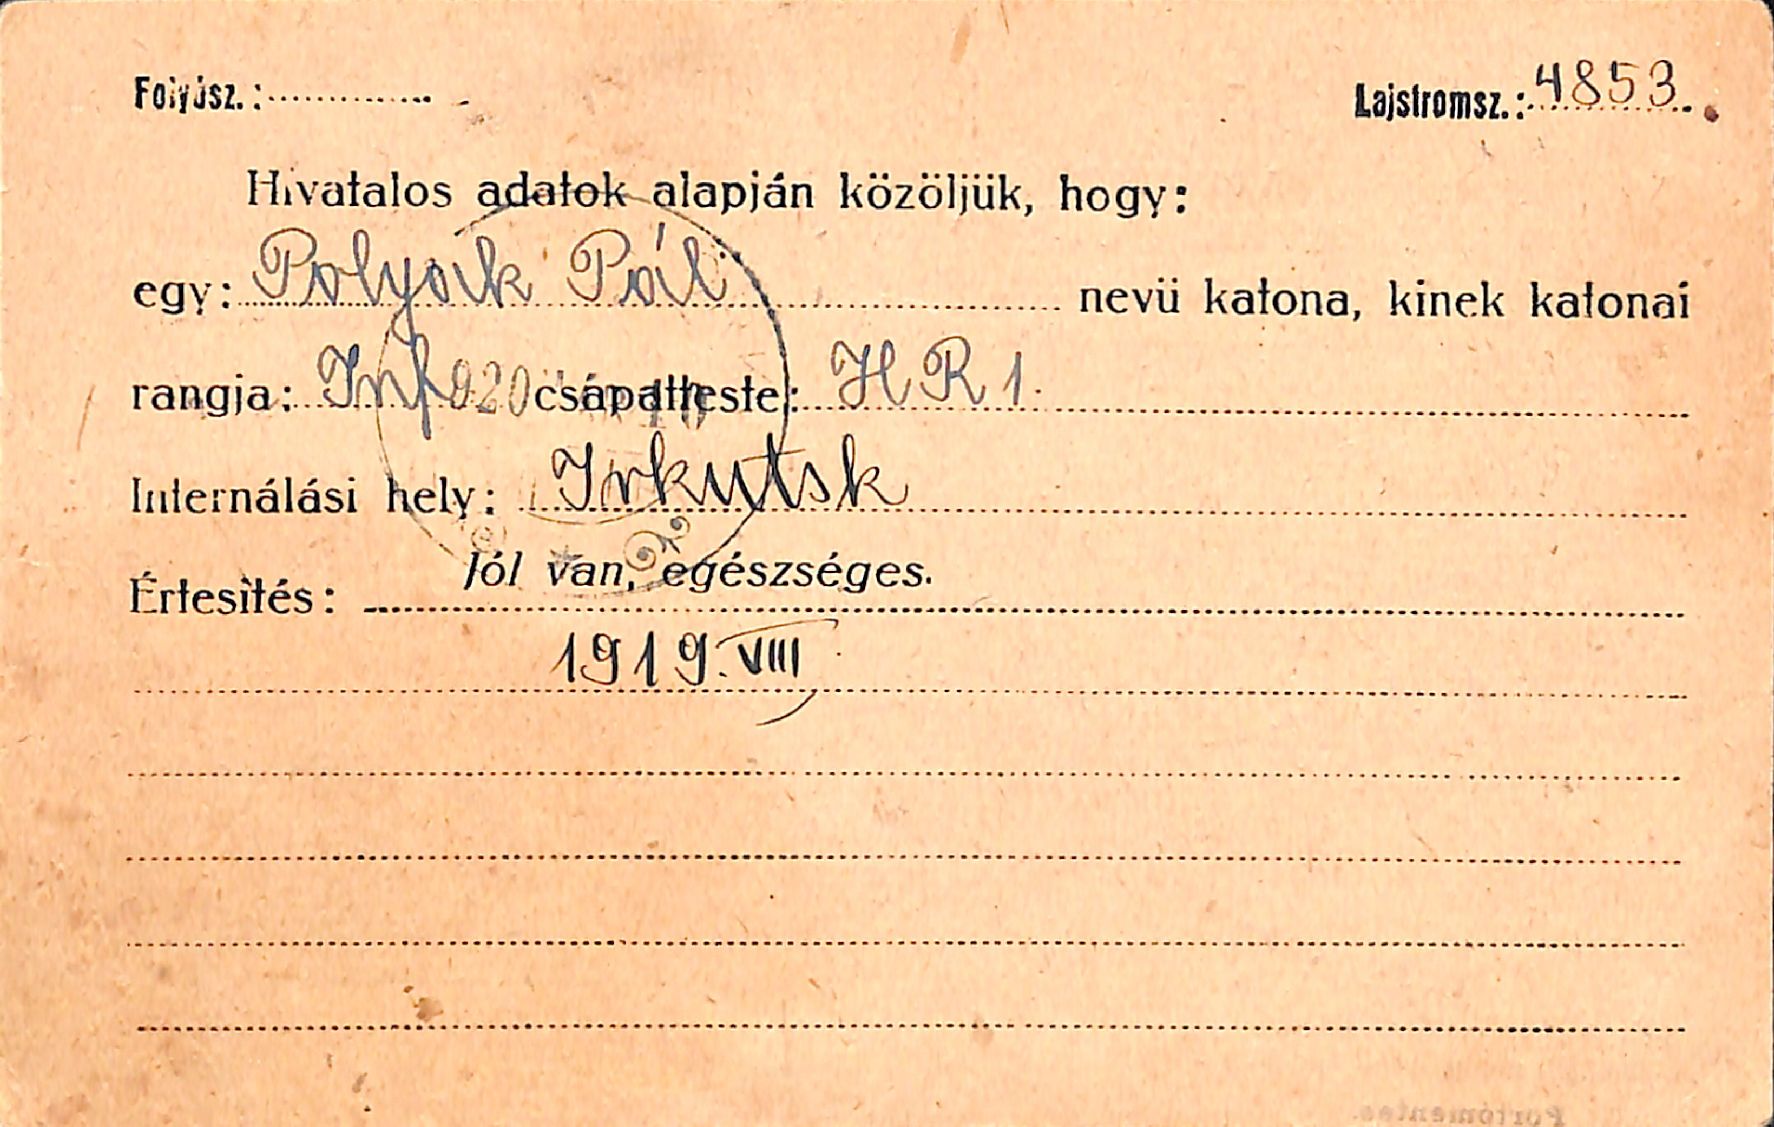 Folyósz.:
Lajstromsz.: 4853.
Hivatalos adatok alapján közöljük, hogy:
egy: Polyák Pál nevü katona, kinek katonai
rangja: Inf csapatteste: HR 1.
Internálási hely: Irkutsk
Értesítés: Jól van, egészséges.
1919. VIII
Portómentes.